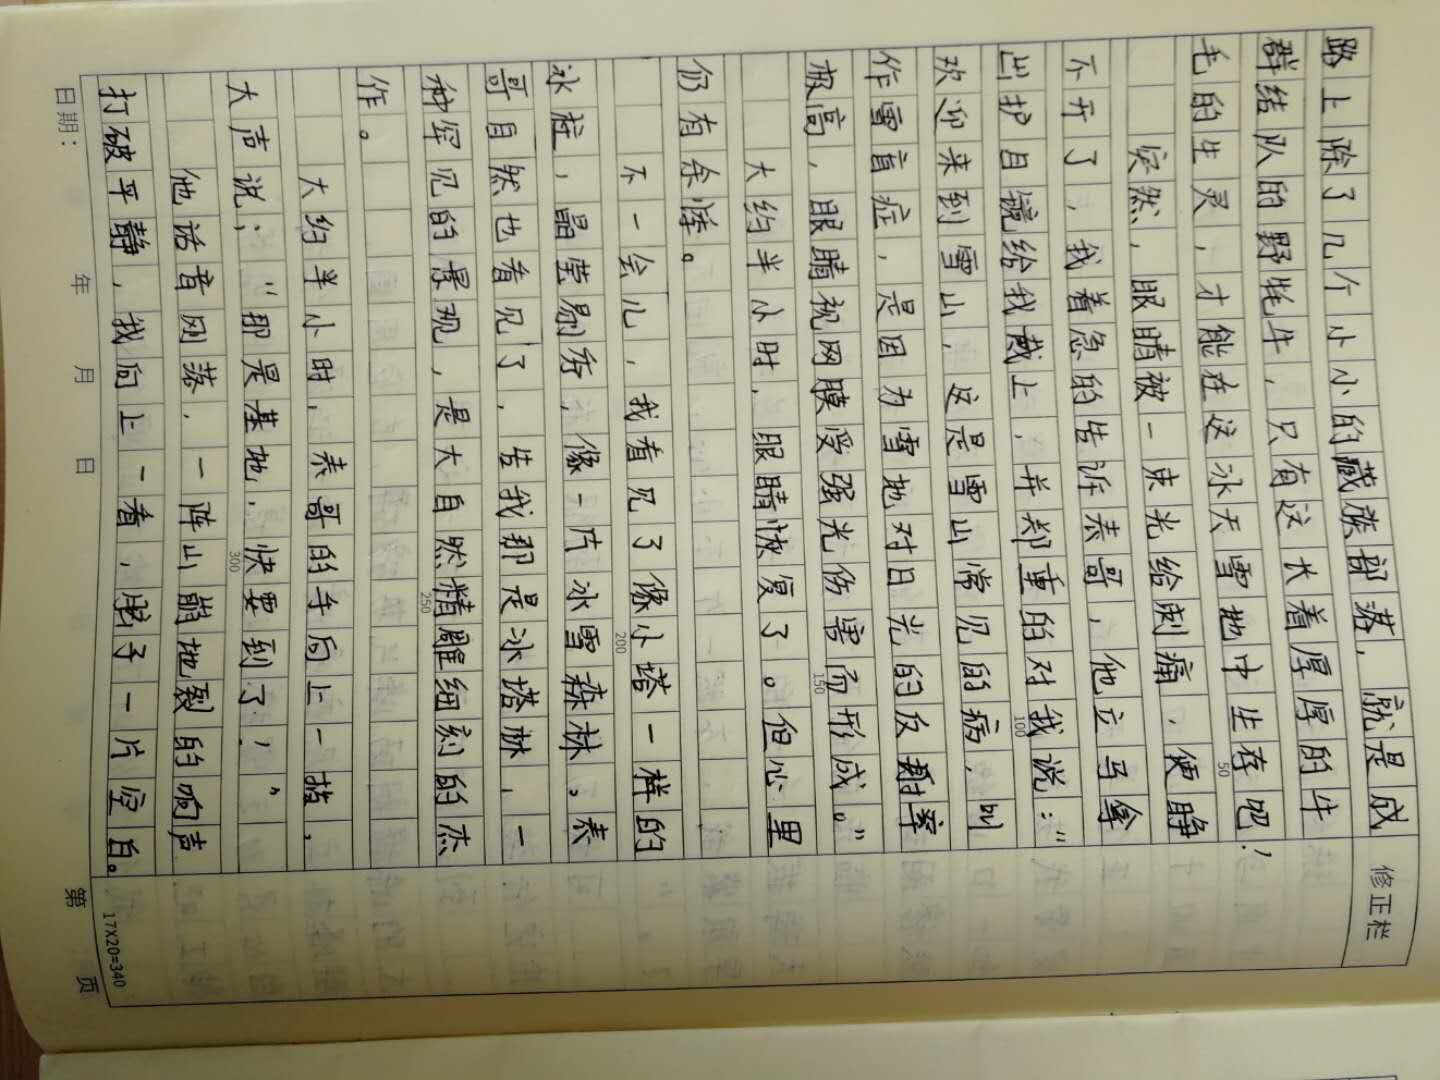 路上除了几个小小的藏族部落，就是成
群结队的野牦牛，只有这大着厚厚的牛
毛的生灵，才能在这冰天雪地中生存吧！
突然，眼睛被一束光给刺痛，便睁
不开了，我着急的告诉表哥，他立马拿
出护目镜给我戴上，并郑重的对我说：“
欢迎来到雪山，这是雪山常见的病，叫
作雪盲症，是因为雪地对日光的反射率
极高，眼睛视网膜受强光伤害而形成。”
大约半小时，眼睛恢复了。但心里
仍有余悸。
不一会儿，我看见了像小塔一样的
冰柱，晶莹剔透，像一片冰雪森林。表
哥自然也看见了，告我那是冰塔林，一
种罕见的景观，是大自然精雕细刻的杰
作。
大约半小时，表哥的手向上一指，
大声说：“那是基地，快要到了，”
他话音刚落，一阵山崩地裂的响声
打破平静，我向上一看，脑子一片空白。
50
100
150
200
250
300
修正栏
日期： 年 月 日
第 页
17X20=340